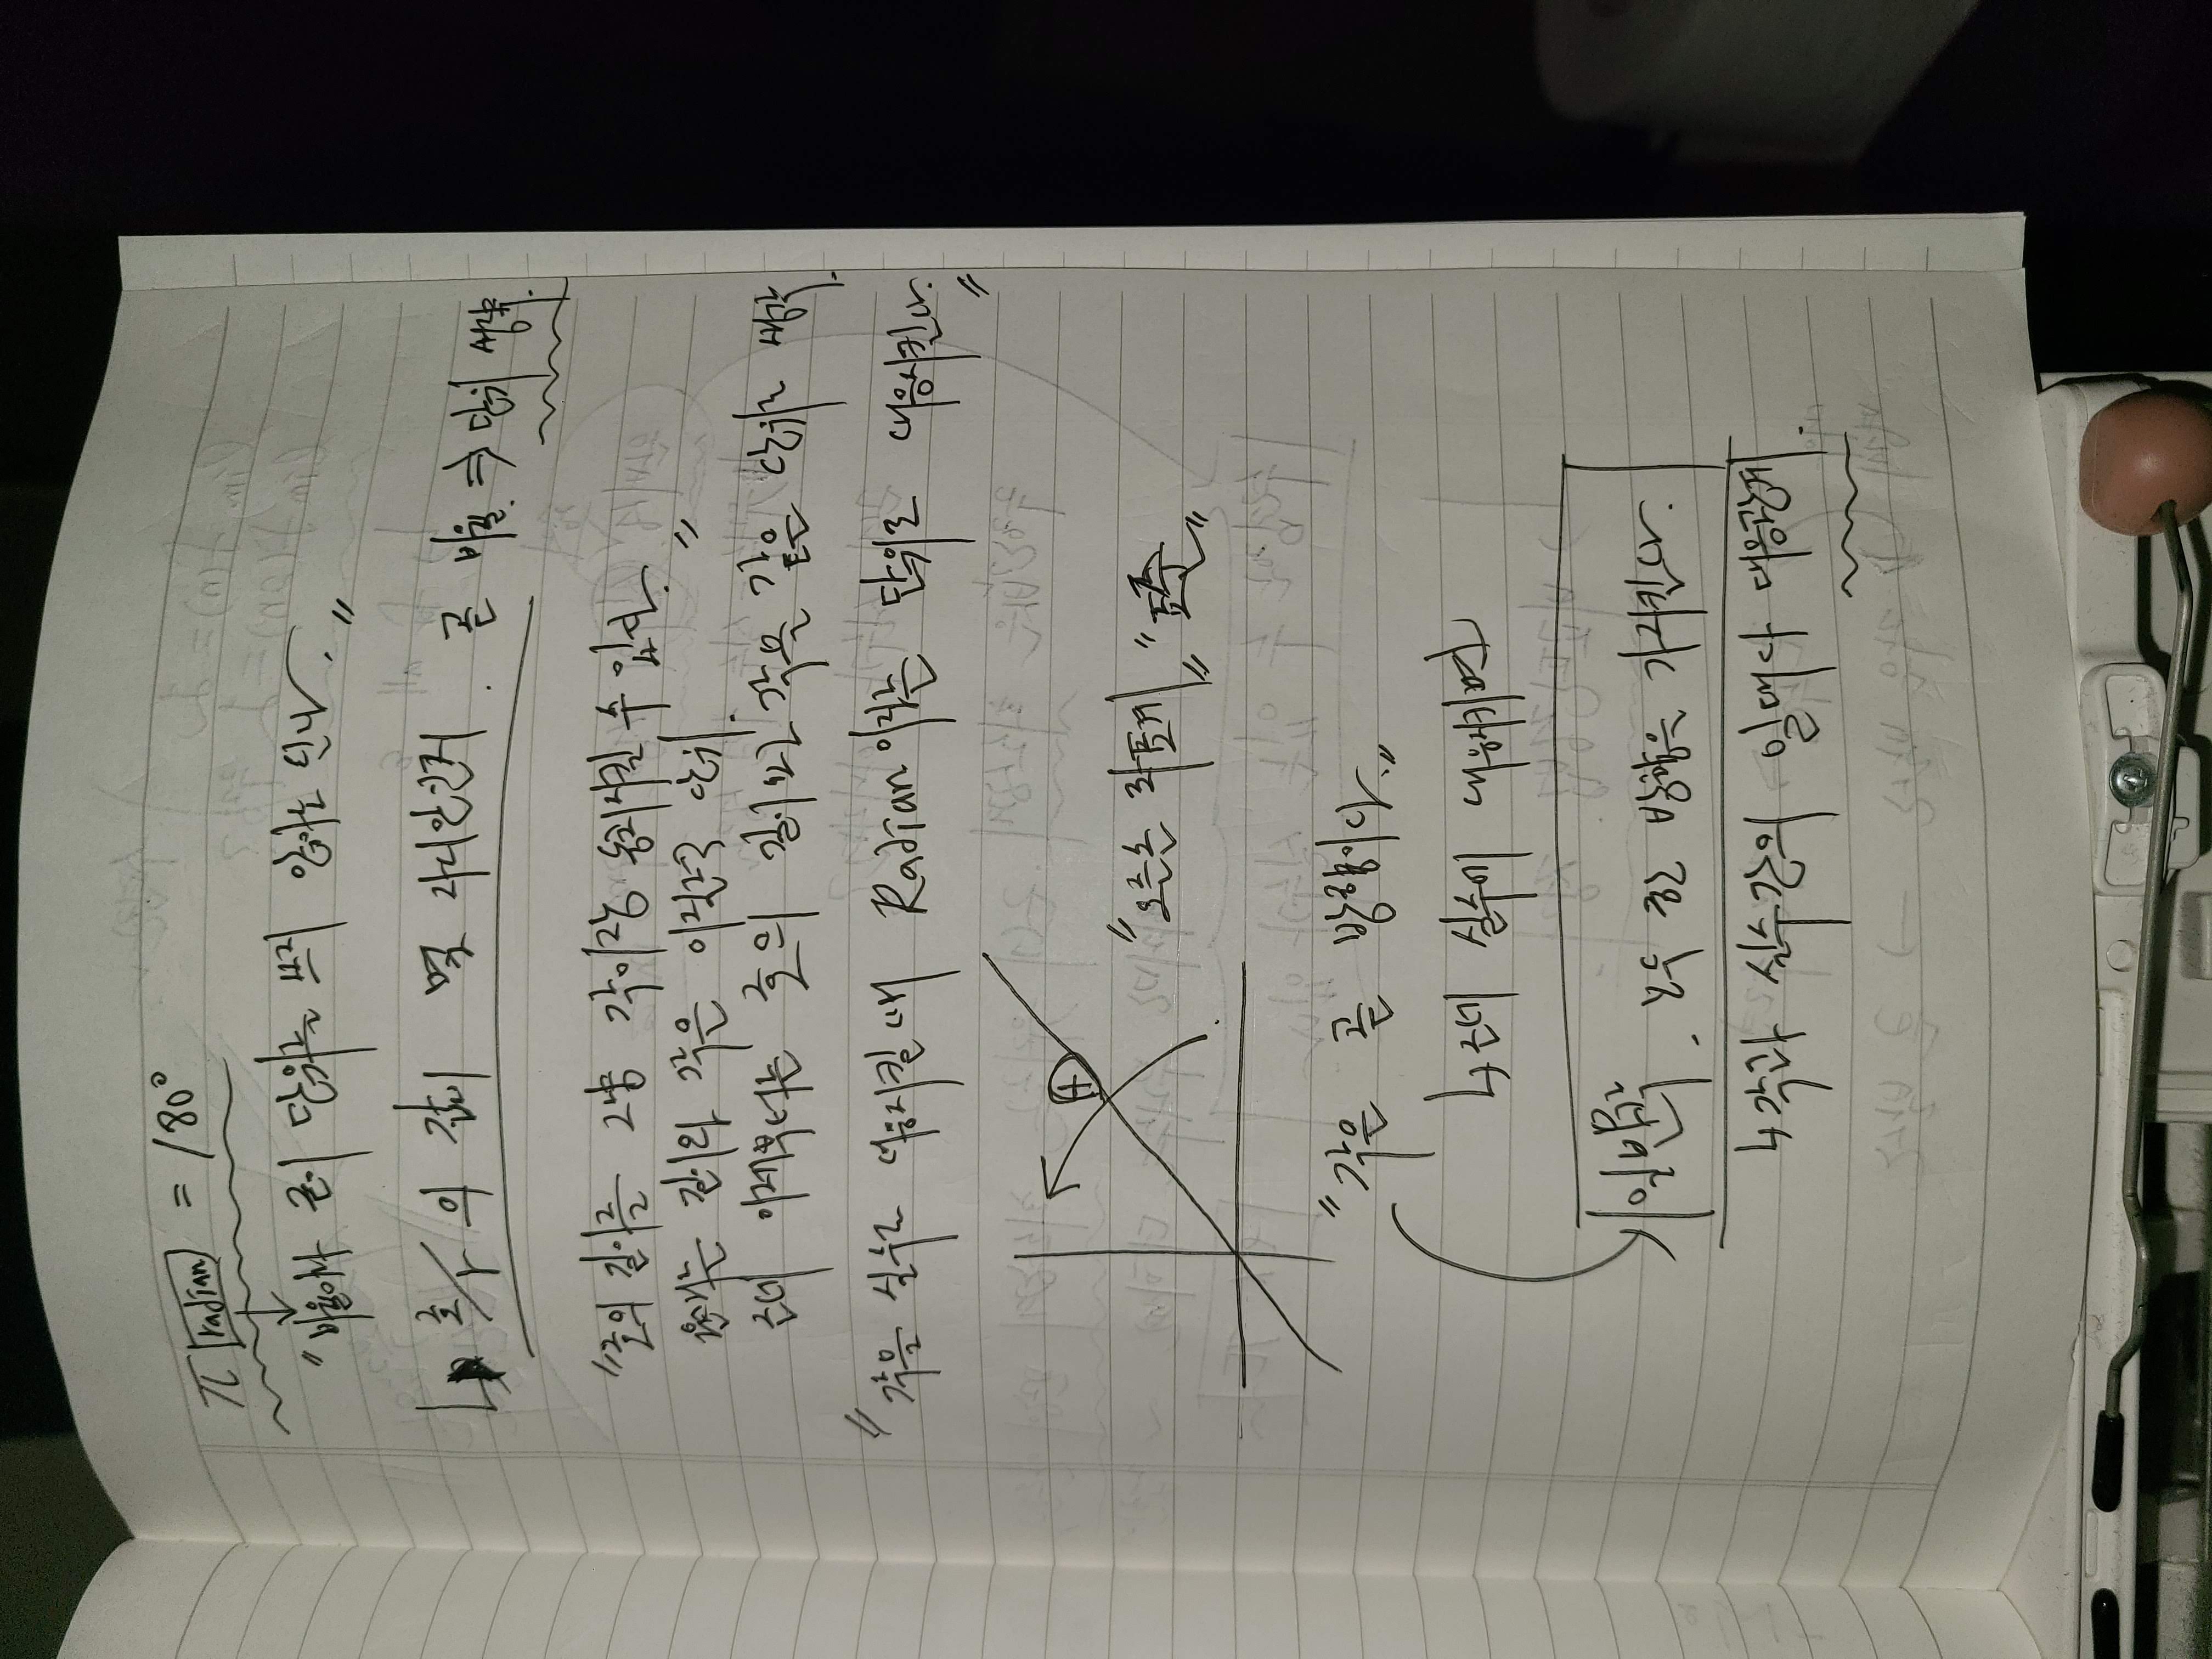 π radian = 180°
"비율이라 굳이 단위를 쓰지 않아도 된다."
↳ 호/r 의 값이 몇 라디안인지. 곧 비율. ⇒ 단위 생략.
"호의 길이를 그냥 각이랑 동치시킬 수 있다."
원래는 길이와 각은 이질적 단위.
근데 이제부터는 호의 길이와 각을 같은 단위로 생각.
"각을 실수로 대응시킬 때 Radian이라는 단위로 대응시킨다."
+
"오른손 좌표계" "표준"
"각은 곧 방향이다."
↳ 근데 실수에 대응시키면
일반각. 모두 한 방향을 가리킨다.
↳ 각과 실수간의 일대다 대응관계.